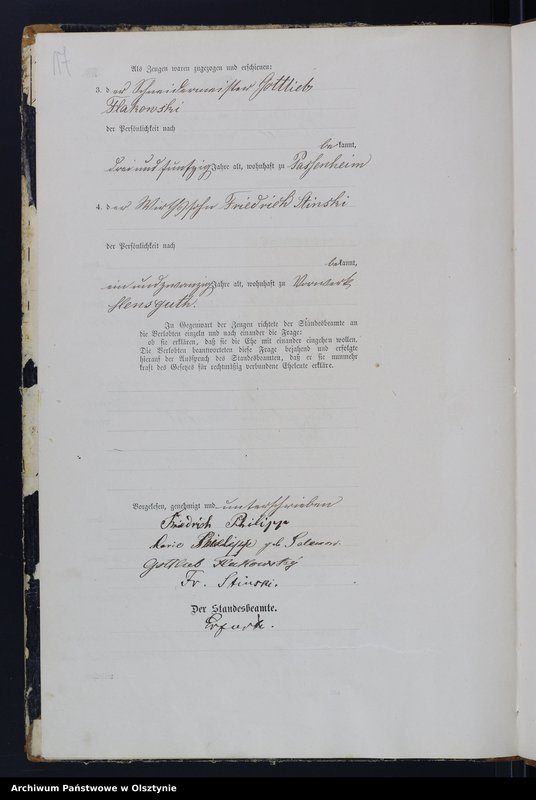 Als Zeugen waren zugezogen und erschienen:
3. der Schneidermeister Gottlieb
Flakowski
der Persönlichkeit nach
bekannt,
drei und fünfzig Jahre alt, wohnhaft zu Passenheim
4. der Wirthssohn Friedrich Stinski
der Persönlichkeit nach
bekannt,
ein und zwanzig Jahre alt, wohnhaft zu Vorwerk
Hensguth.
In Gegenwart der Zeugen richtete der Standesbeamte an
die Verlobten einzeln und nach einander die Frage:
ob sie erklären, daß sie die Ehe mit einander eingehen wollen.
Die Verlobten beantworteten diese Frage bejahend und erfolgte
hierauf der Ausspruch des Standesbeamten, daß er sie nunmehr
kraft des Gesetzes für rechtmäßig verbundene Eheleute erkläre.
Vorgelesen, genehmigt und unterschrieben
Friedrich Philipp
Marie Philipp geb
Gottlieb Flakowsky
Fr. Stinski.
Der Standesbeamte.
Archiwum Państwowe w Olsztynie